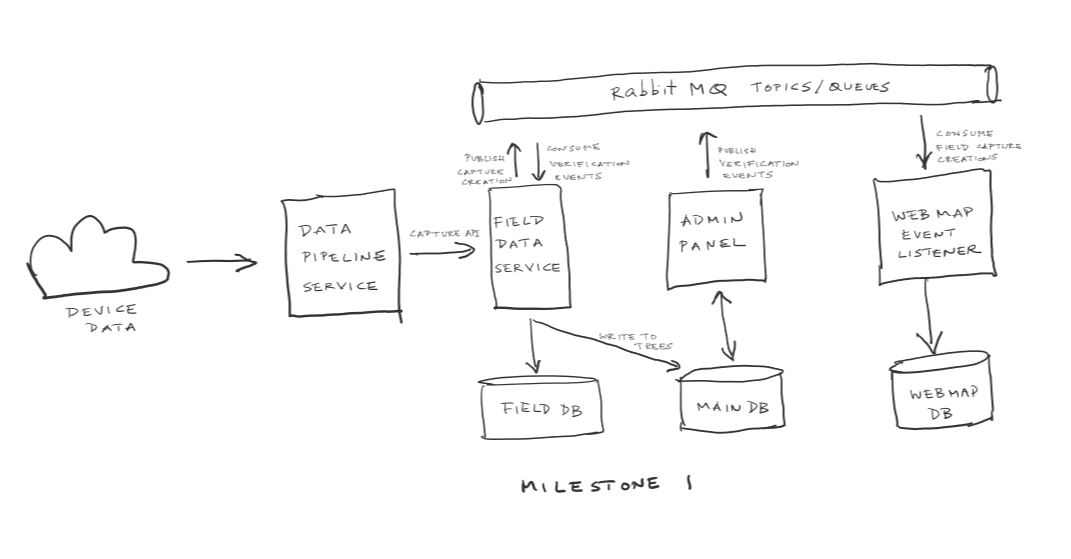 Rabbit MQ TOPICS/QUEUES
PUBLISH
CAPTURE
CREATION
CONSUME
VERIFICATION
EVENTS
PUBLISH
VERIFICATION
EVENTS
CONSUME
FIELD CAPTURE
CREATIONS
DEVICE
DATA
DATA
PIPELINE
SERVICE
CAPTURE API
FIELD
DATA
SERVICE
ADMIN
PANEL
WEB MAP
EVENT
LISTENER
WRITE TO
TREES
FIELD DB
MAIN DB
WEBMAP
DB
MILESTONE 1